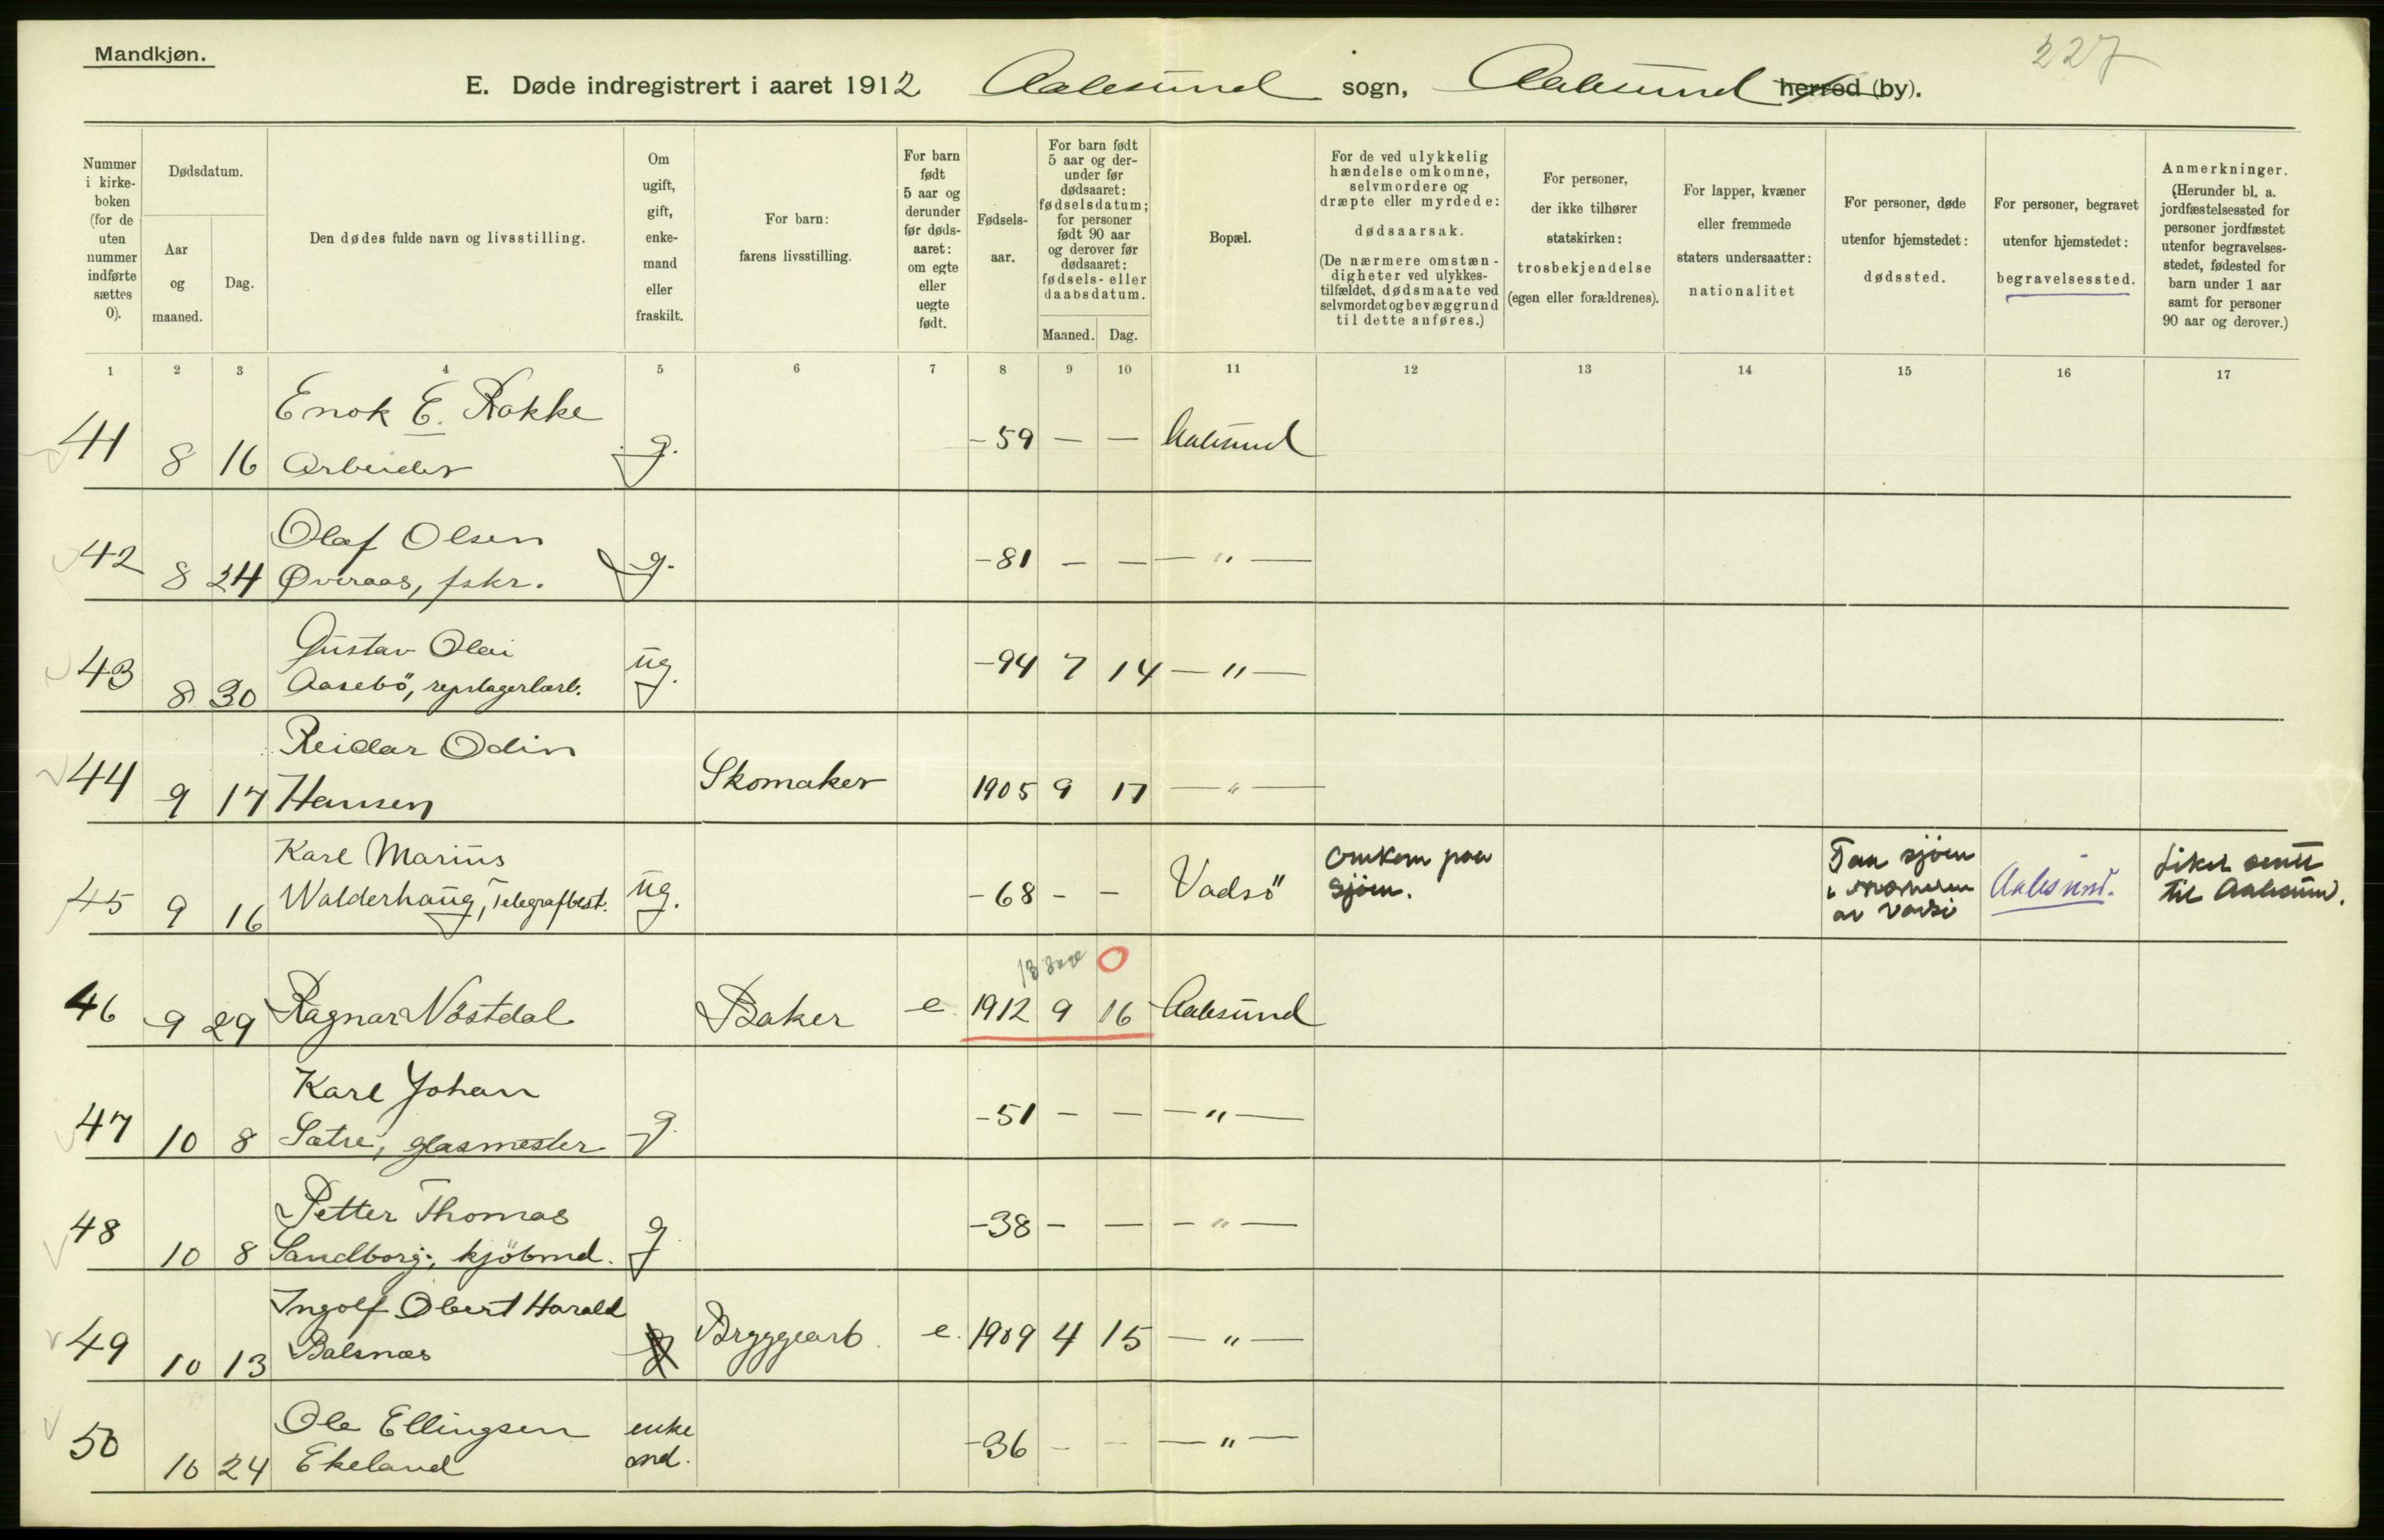 Mandkjøn.
227
E. Døde indregistrert i aaret 1912 Aalesund sogn, Aalesund herred (by).
Nummer i kirke-boken (for de uten nummer indførte sættes 0).
Dødsdatum.
Aar og maaned.
Dag.
Den dødes fulde navn og livsstilling.
Om ugift, gift, enke-mand eller fraskilt.
For barn: farens livsstilling.
For barn født 5 aar og derunder før døds-aaret: om egte eller uegte født.
Fødsels-aar.
For barn født 5 aar og der-under før dødsaaret: fødselsdatum; for personer født 90 aar og derover før dødsaaret: fødsels- eller daabsdatum.
Maaned. Dag.
Bopæl.
For de ved ulykkelig hændelse omkomne, selvmordere og dræpte eller myrdede: dødsaarsak. (De nærmere omstæn-digheter ved ulykkes-tilfældet, dødsmaate ved selvmordet og bevæggrund til dette anføres.)
For personer, der ikke tilhører statskirken: trosbekjendelse (egen eller forældrenes).
For lapper, kvæner eller fremmede staters undersaatter: nationalitet
For personer, døde utenfor hjemstedet: dødssted.
For personer, begravet utenfor hjemstedet: begravelsessted.
Anmerkninger. (Herunder bl. a. jordfæstelsessted for personer jordfæstet utenfor begravelses-stedet, fødested for barn under 1 aar samt for personer 90 aar og derover.)
1 2 3 4 5 6 7 8 9 10 11 12 13 14 15 16 17
Enok E. Rokke
41 8 16 Arbeider g. -59 — — Aalesund
Olaf Olsen
42 8 24 Øveraas, fskr. g. -81 — — — " —
Gustav Olai
43 8 30 Aasebö, repslagerlærl. ug. -94 7 14 — " —
Reidar Odin
44 9 17 Hansen Skomaker 1905 9 17 — " —
Karl Marius
45 9 16 Walderhaug, Telegrafbest. ug. -68 - - Vadsö Omkom paa sjöen. Paa sjöen i av Vadsö Aalesund. Liket sent til Aalesund.
13 dage 0
46 9 29 Ragnar Nöstdal Baker e. 1912 9 16 Aalesund
Karl Johan
47 10 8 Satre, glasmester g. -51 - — — " —
Petter Thomas
48 10 8 Sandborg, kjöbmd. g -38 - — - " —
Ingolf Obert Harald
49 10 13 Balsnæs Bryggearb. e. 1909 4 15 — " —
Ole Ellingsen
50 10 24 Ekeland enke md. -36 - - — " —